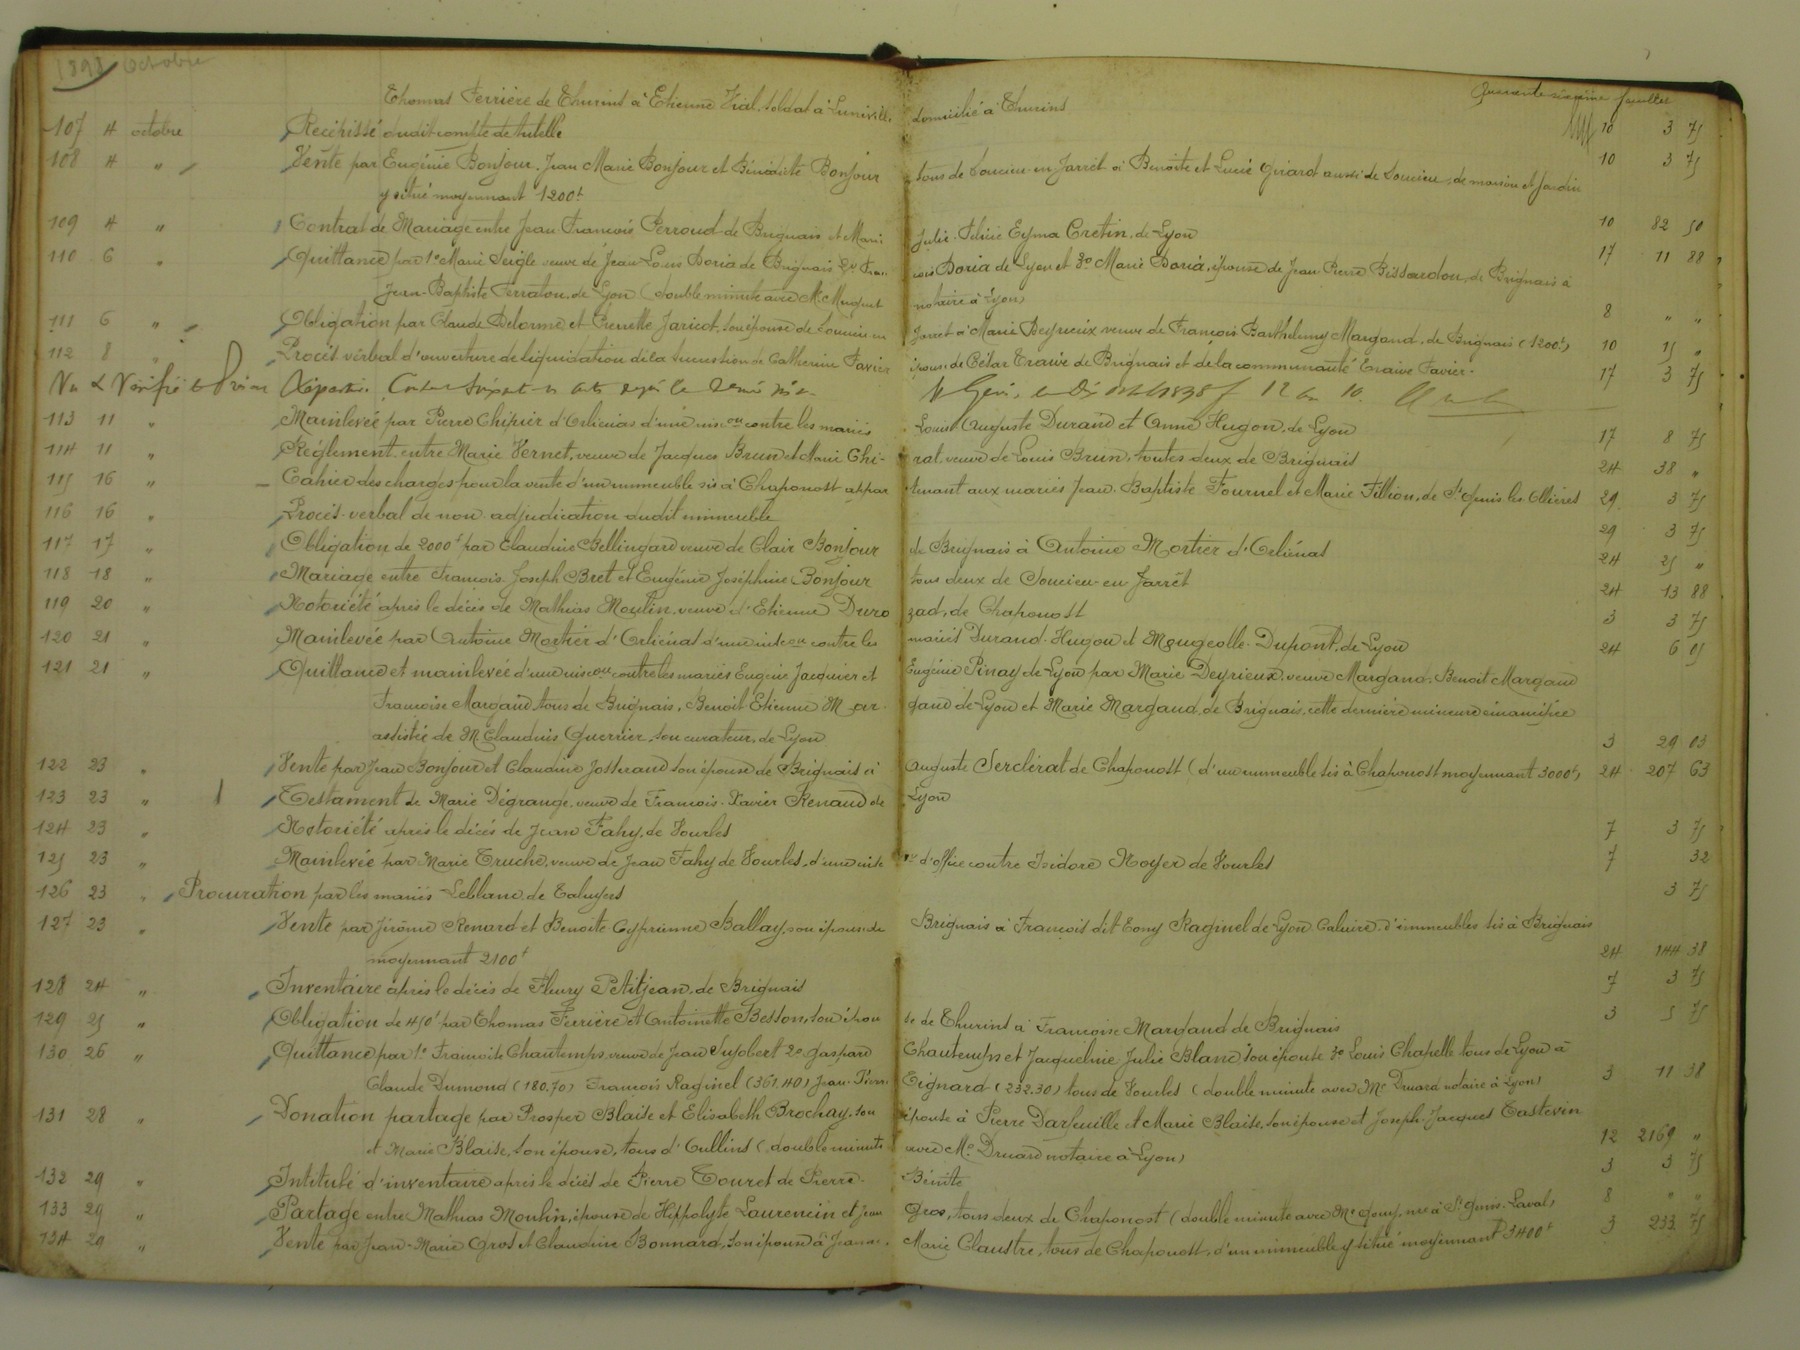 1898 Octobre
Quarante sixième feuillet
Thomas Ferrière de Thurins à Etienne Vial, soldat à Luneville, domicilié à Thurins
107 4 octobre Récépissé dudit compte de tutelle 10 3 75
108 4 " Vente par Eugénie Bonjour, Jean Marie Bonjour et Bénédicte Bonjour tous de Soucieu en Jarret à Benoite et Lucie Girard aussi de Soucieu, de maison et jardin 10 3 75
y situé moyennant 1200f
109 4 " Contrat de Mariage entre Jean François Perroud de Brignais et Marie Julie Félicie Eyma Cretin, de Lyon 10 82 50
110 6 " Quittance par 1° Marie Seigle veuve de Jean Louis Doria de Brignais 2° François Doria de Lyon et 3° Marie Doria, épouse de Jean Pierre Bissardon, de Brignais à 17 11 88
Jean-Baptiste Ferraton, de Lyon (double minute avec Me Muguet notaire à Lyon)
111 6 " Obligation par Claude Delorme et Pierrette Jaricot, son épouse de Soucieu en Jarret à Marie Deyrieux veuve de François Barthélemy Margand, de Brignais (1200f) 8 " "
112 8 " Procès verbal d'ouverture de liquidation de la succession de Catherine Favier épouse de César Eraive de Brignais et de la communauté Eraive Favier. 10 15 "
Vu & Vérifié 17 3 75
113 11 " Mainlevée par Pierre Chipier d'Orliénas d'une insc.on contre les mariés Louis Auguste Durand et Anne Hugon, de Lyon 17 8 75
114 11 " Règlement entre Marie Vernet, veuve de Jacques Brun et Marie Chirat, veuve de Louis Brun, toutes deux de Brignais 24 38 "
115 16 " Cahier des charges pour la vente d'un immeuble sis à Chaponost appartenant aux mariés Jean-Baptiste Fournel et Marie Fillion, de St Genis les Ollières 29 3 75
116 16 " Procès-verbal de non adjudication dudit immeuble 29 3 75
117 17 " Obligation de 2000f par Claudine Bellingard veuve de Clair Bonjour de Brignais à Antoine Mortier d'Orliénas 24 25 "
118 18 " Mariage entre François Joseph Bret et Eugénie Joséphine Bonjour tous deux de Soucieu-en Jarrêt 24 13 88
119 20 " Notoriété après le décès de Mathias Moulin, veuve d'Etienne Durozad, de Chaponost 3 3 75
120 21 " Mainlevée par Antoine Mortier d'Orliénas d'une insc.on contre les mariés Durand-Hugon et Mougeolle-Dupont, de Lyon 24 6 05
121 21 " Quittance et mainlevée d'une insc.on contre les mariés Eugène Jacquier et Eugénie Pinay de Lyon par Marie Deyrieux veuve Margand, Benoit Margand
Françoise Margand tous de Brignais, Benoit Etienne Margand de Lyon et Marie Margand, de Brignais, cette dernière mineure émancipée
assistée de M. Claudius Guerrier, son curateur, de Lyon 3 29 03
122 23 " Vente par Jean Bonjour et Claudine Josserand son épouse de Brignais à Auguste Serclérat de Chaponost (d'un immeuble sis à Chaponost moyennant 3000f) 24 207 63
123 23 " Testament de Marie Dégrange, veuve de François-Xavier Renaud de Lyon
124 23 " Notoriété après le décès de Jean Fahy, de Vourles 7 3 75
125 23 " Mainlevée par Marie Truche, veuve de Jean Fahy de Vourles, d'une insc.on d'office contre Isidore Noyer de Vourles 7 32
126 23 " Procuration par les mariés Leblanc de Taluyers 3 75
127 23 " Vente par Jérôme Renard et Benoite Cyprienne Ballay, son épouse de Brignais à François dit Tony Raginel de Lyon Caluire, d'immeubles sis à Brignais
moyennant 2100f 24 144 38
128 24 " Inventaire après le décès de Fleury Petitjean, de Brignais 7 3 75
129 25 " Obligation de 450f par Thomas Ferrière et Antoinette Besson, son épouse de Thurins à Françoise Margand de Brignais 3 5 75
130 26 " Quittance par 1° Françoise Chautemps, veuve de Jean Sujobert 2° Gaspard Chautemps et Jacqueline Julie Blanc son épouse 3° Louis Chapelle tous de Lyon à
Claude Dumond (180,70) François Raginel (361.40) Jean-Pierre Tignard (232.30) tous de Vourles (double minute avec Me Druard notaire à Lyon) 3 11 38
131 28 " Donation partage par Prosper Blaise et Elisabeth Brochay, son épouse à Pierre Darfeuille et Marie Blaise, son épouse et Joseph-Jacques Tastevin
et Marie Blaise, son épouse, tous d'Oullins (double minute avec Me Druard notaire à Lyon) 12 2169 "
132 29 " Intitulé d'inventaire après le décès de Pierre Touret de Pierre-Bénite 3 3 75
133 29 " Partage entre Mathias Moulin, épouse de Hippolyte Laurencin et Jean Gros, tous deux de Chaponost (double minute avec Me Gony, nre à St Genis-Laval) 8 " "
134 29 " Vente par Jean-Marie Gros et Claudine Bonnard, son épouse à Jeanne-Marie Claustre, tous de Chaponost, d'un immeuble y situé moyennant 3400f 3 233 75